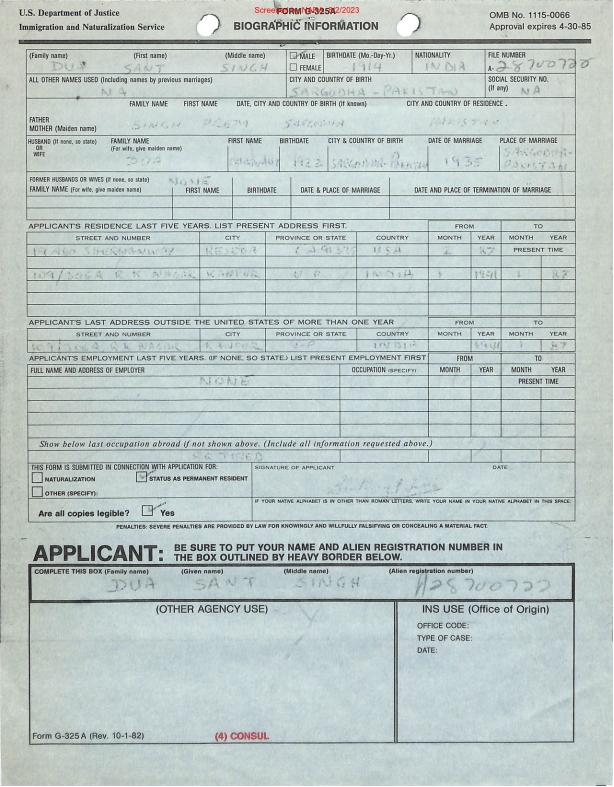 U.S. Department of Justice
Immigration and Naturalization Service
FORM G-325A
BIOGRAPHIC INFORMATION
OMB No. 1115-0066
Approval expires 4-30-85
(Family name) (First name) (Middle name) MALE FEMALE BIRTHDATE (Mo.-Day-Yr.) NATIONALITY FILE NUMBER
DUA SANT SINGH 1914 INDIA A-28700720
ALL OTHER NAMES USED (Including names by previous marriages) CITY AND COUNTRY OF BIRTH SOCIAL SECURITY NO. (If any)
NA SARGODHA - PAKISTAN NA
FAMILY NAME FIRST NAME DATE, CITY AND COUNTRY OF BIRTH (If known) CITY AND COUNTRY OF RESIDENCE.
FATHER
MOTHER (Maiden name)
SINGH SARGODHA PAKISTAN
HUSBAND (If none, so state) OR WIFE FAMILY NAME (For wife, give maiden name) FIRST NAME BIRTHDATE CITY & COUNTRY OF BIRTH DATE OF MARRIAGE PLACE OF MARRIAGE
DUA 1922 SARGODHA-PAKISTAN 1935 SARGODHA-PAKISTAN
FORMER HUSBANDS OR WIVES (If none, so state) NONE
FAMILY NAME (For wife, give maiden name) FIRST NAME BIRTHDATE DATE & PLACE OF MARRIAGE DATE AND PLACE OF TERMINATION OF MARRIAGE
APPLICANT'S RESIDENCE LAST FIVE YEARS. LIST PRESENT ADDRESS FIRST. FROM TO
STREET AND NUMBER CITY PROVINCE OR STATE COUNTRY MONTH YEAR MONTH YEAR
SHERMANWAY RESEDA CA 91335 USA 87 PRESENT TIME
R K NAGAR KANPUR U.P. INDIA 1 1941 1 87
APPLICANT'S LAST ADDRESS OUTSIDE THE UNITED STATES OF MORE THAN ONE YEAR FROM TO
STREET AND NUMBER CITY PROVINCE OR STATE COUNTRY MONTH YEAR MONTH YEAR
R K NAGAR KANPUR U-P INDIA 1941 1 87
APPLICANT'S EMPLOYMENT LAST FIVE YEARS. (IF NONE, SO STATE) LIST PRESENT EMPLOYMENT FIRST FROM TO
FULL NAME AND ADDRESS OF EMPLOYER OCCUPATION (SPECIFY) MONTH YEAR MONTH YEAR
NONE PRESENT TIME
Show below last occupation abroad if not shown above. (Include all information requested above.)
RETIRED
THIS FORM IS SUBMITTED IN CONNECTION WITH APPLICATION FOR: SIGNATURE OF APPLICANT DATE
NATURALIZATION STATUS AS PERMANENT RESIDENT
OTHER (SPECIFY):
IF YOUR NATIVE ALPHABET IS IN OTHER THAN ROMAN LETTERS, WRITE YOUR NAME IN YOUR NATIVE ALPHABET IN THIS SPACE:
Are all copies legible? Yes
PENALTIES: SEVERE PENALTIES ARE PROVIDED BY LAW FOR KNOWINGLY AND WILLFULLY FALSIFYING OR CONCEALING A MATERIAL FACT.
APPLICANT: BE SURE TO PUT YOUR NAME AND ALIEN REGISTRATION NUMBER IN
THE BOX OUTLINED BY HEAVY BORDER BELOW.
COMPLETE THIS BOX (Family name) (Given name) (Middle name) (Alien registration number)
DUA SANT SINGH A28700722
(OTHER AGENCY USE) INS USE (Office of Origin)
OFFICE CODE:
TYPE OF CASE:
DATE:
Form G-325 A (Rev. 10-1-82) (4) CONSUL